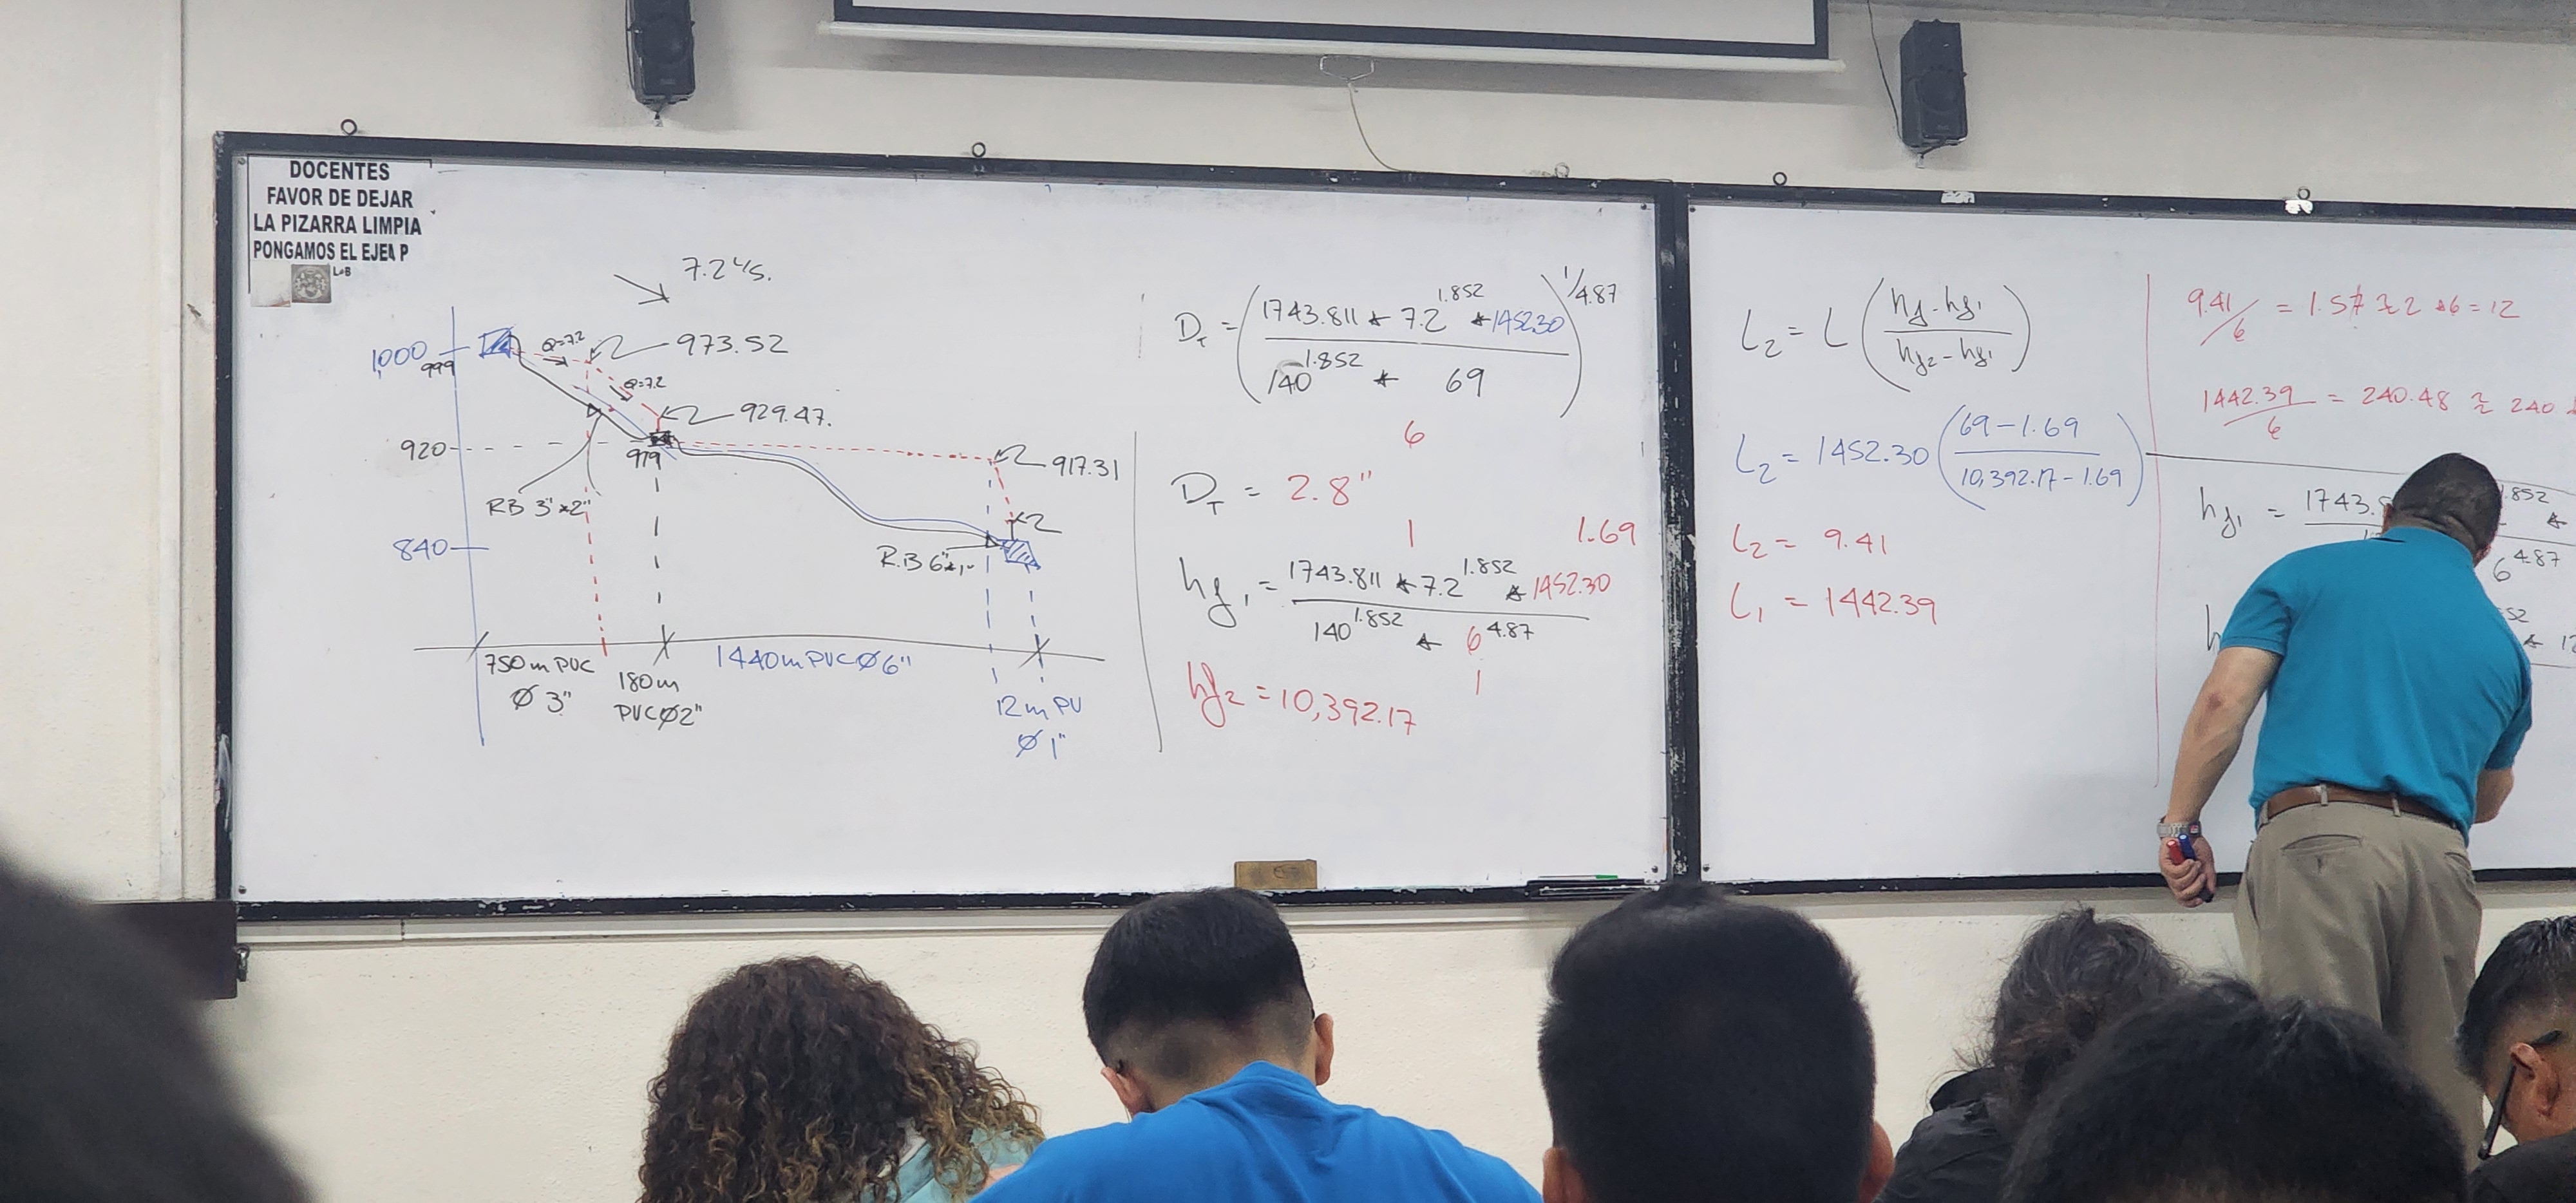 DOCENTES
FAVOR DE DEJAR
LA PIZARRA LIMPIA
PONGAMOS EL EJEM P
7.2 L/s.
1,000
999
Q=7.2
973.52
Q=7.2
929.47.
920
919
917.31
RB 3"x2"
840
R.B 6"x1"
750m PVC
Ø 3"
180m
PVC Ø2"
1440m PVC Ø6"
12m PV
Ø 1"
D_T = (1743.811 * 7.2^1.852 * 1452.30 / 140^1.852 * 69)^1/4.87
6
D_T = 2.8"
1
1.69
hf_1 = 1743.811 * 7.2^1.852 * 1452.30 / 140^1.852 * 6^4.87
1
hf_2 = 10,392.17
L_2 = L (hf - hf_1 / hf_2 - hf_1)
L_2 = 1452.30 (69 - 1.69 / 10,392.17 - 1.69)
L_2 = 9.41
L_1 = 1442.39
9.41/6 = 1.57 ≈ 2 * 6 = 12
1442.39/6 = 240.48 ≈ 240
hf_1 = 1743.8
1.852 *
6^4.87